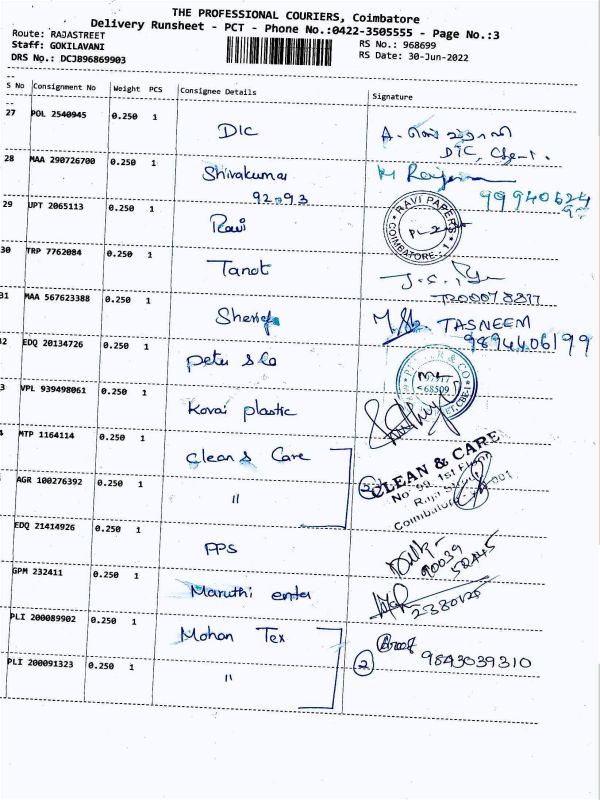 THE PROFESSIONAL COURIERS, Coimbatore
Delivery Runsheet - PCT - Phone No.:0422-3505555 - Page No.:3
Route: RAJASTREET RS No.: 968699
Staff: GOKILAVANI RS Date: 30-Jun-2022
DRS No.: DCJB96869903
S No Consignment No Weight PCS Consignee Details Signature
27 POL 2540945 0.250 1 DIC
DIC, Cbe-1.
28 MAA 290726700 0.250 1 Shivakumar
9293 99940624
29 UPT 2065113 0.250 1 Ravi RAVI PAPERS COIMBATORE - 1
30 TRP 7762084 0.250 1 Tanot
31 MAA 567623388 0.250 1 Sherif TASNEEM
9894406199
2 EDQ 20134726 0.250 1 peter & co
3 VPL 939498061 0.250 1 Kovai plastic
4 MTP 1164114 0.250 1 Clean & Care CLEAN & CARE
No 99, 1st Floor
Raja Street
Coimbatore - 001
AGR 100276392 0.250 1 "
EDQ 21414926 0.250 1 PPS
90039
GPM 232411 0.250 1 Maruthi enter
PLI 200089902 0.250 1 Mohan Tex
2 9843039310
PLI 200091323 0.250 1 "